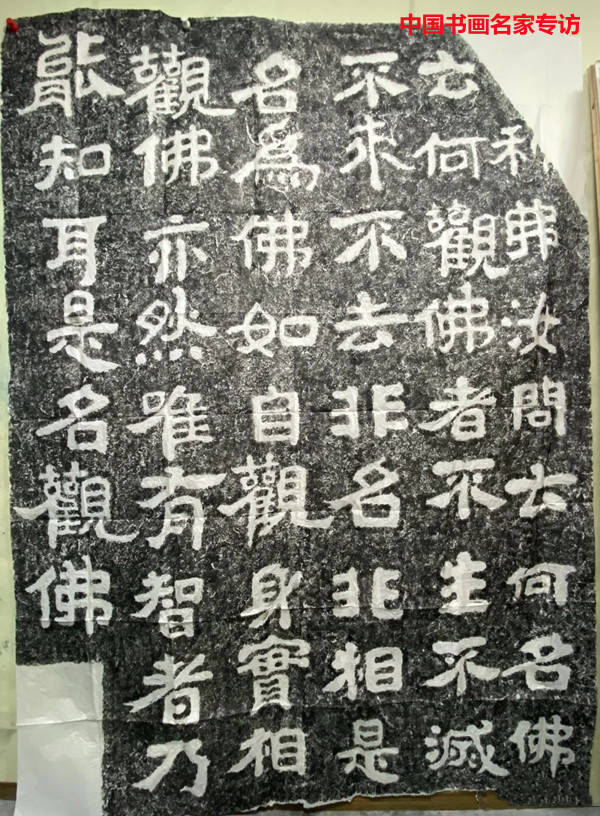 中国书画名家专访
利弗汝問云何名佛
云何觀佛者不生不滅
不来不去非名非相是
名為佛如自觀身實相
觀佛亦然唯有智者乃
能知耳是名觀佛